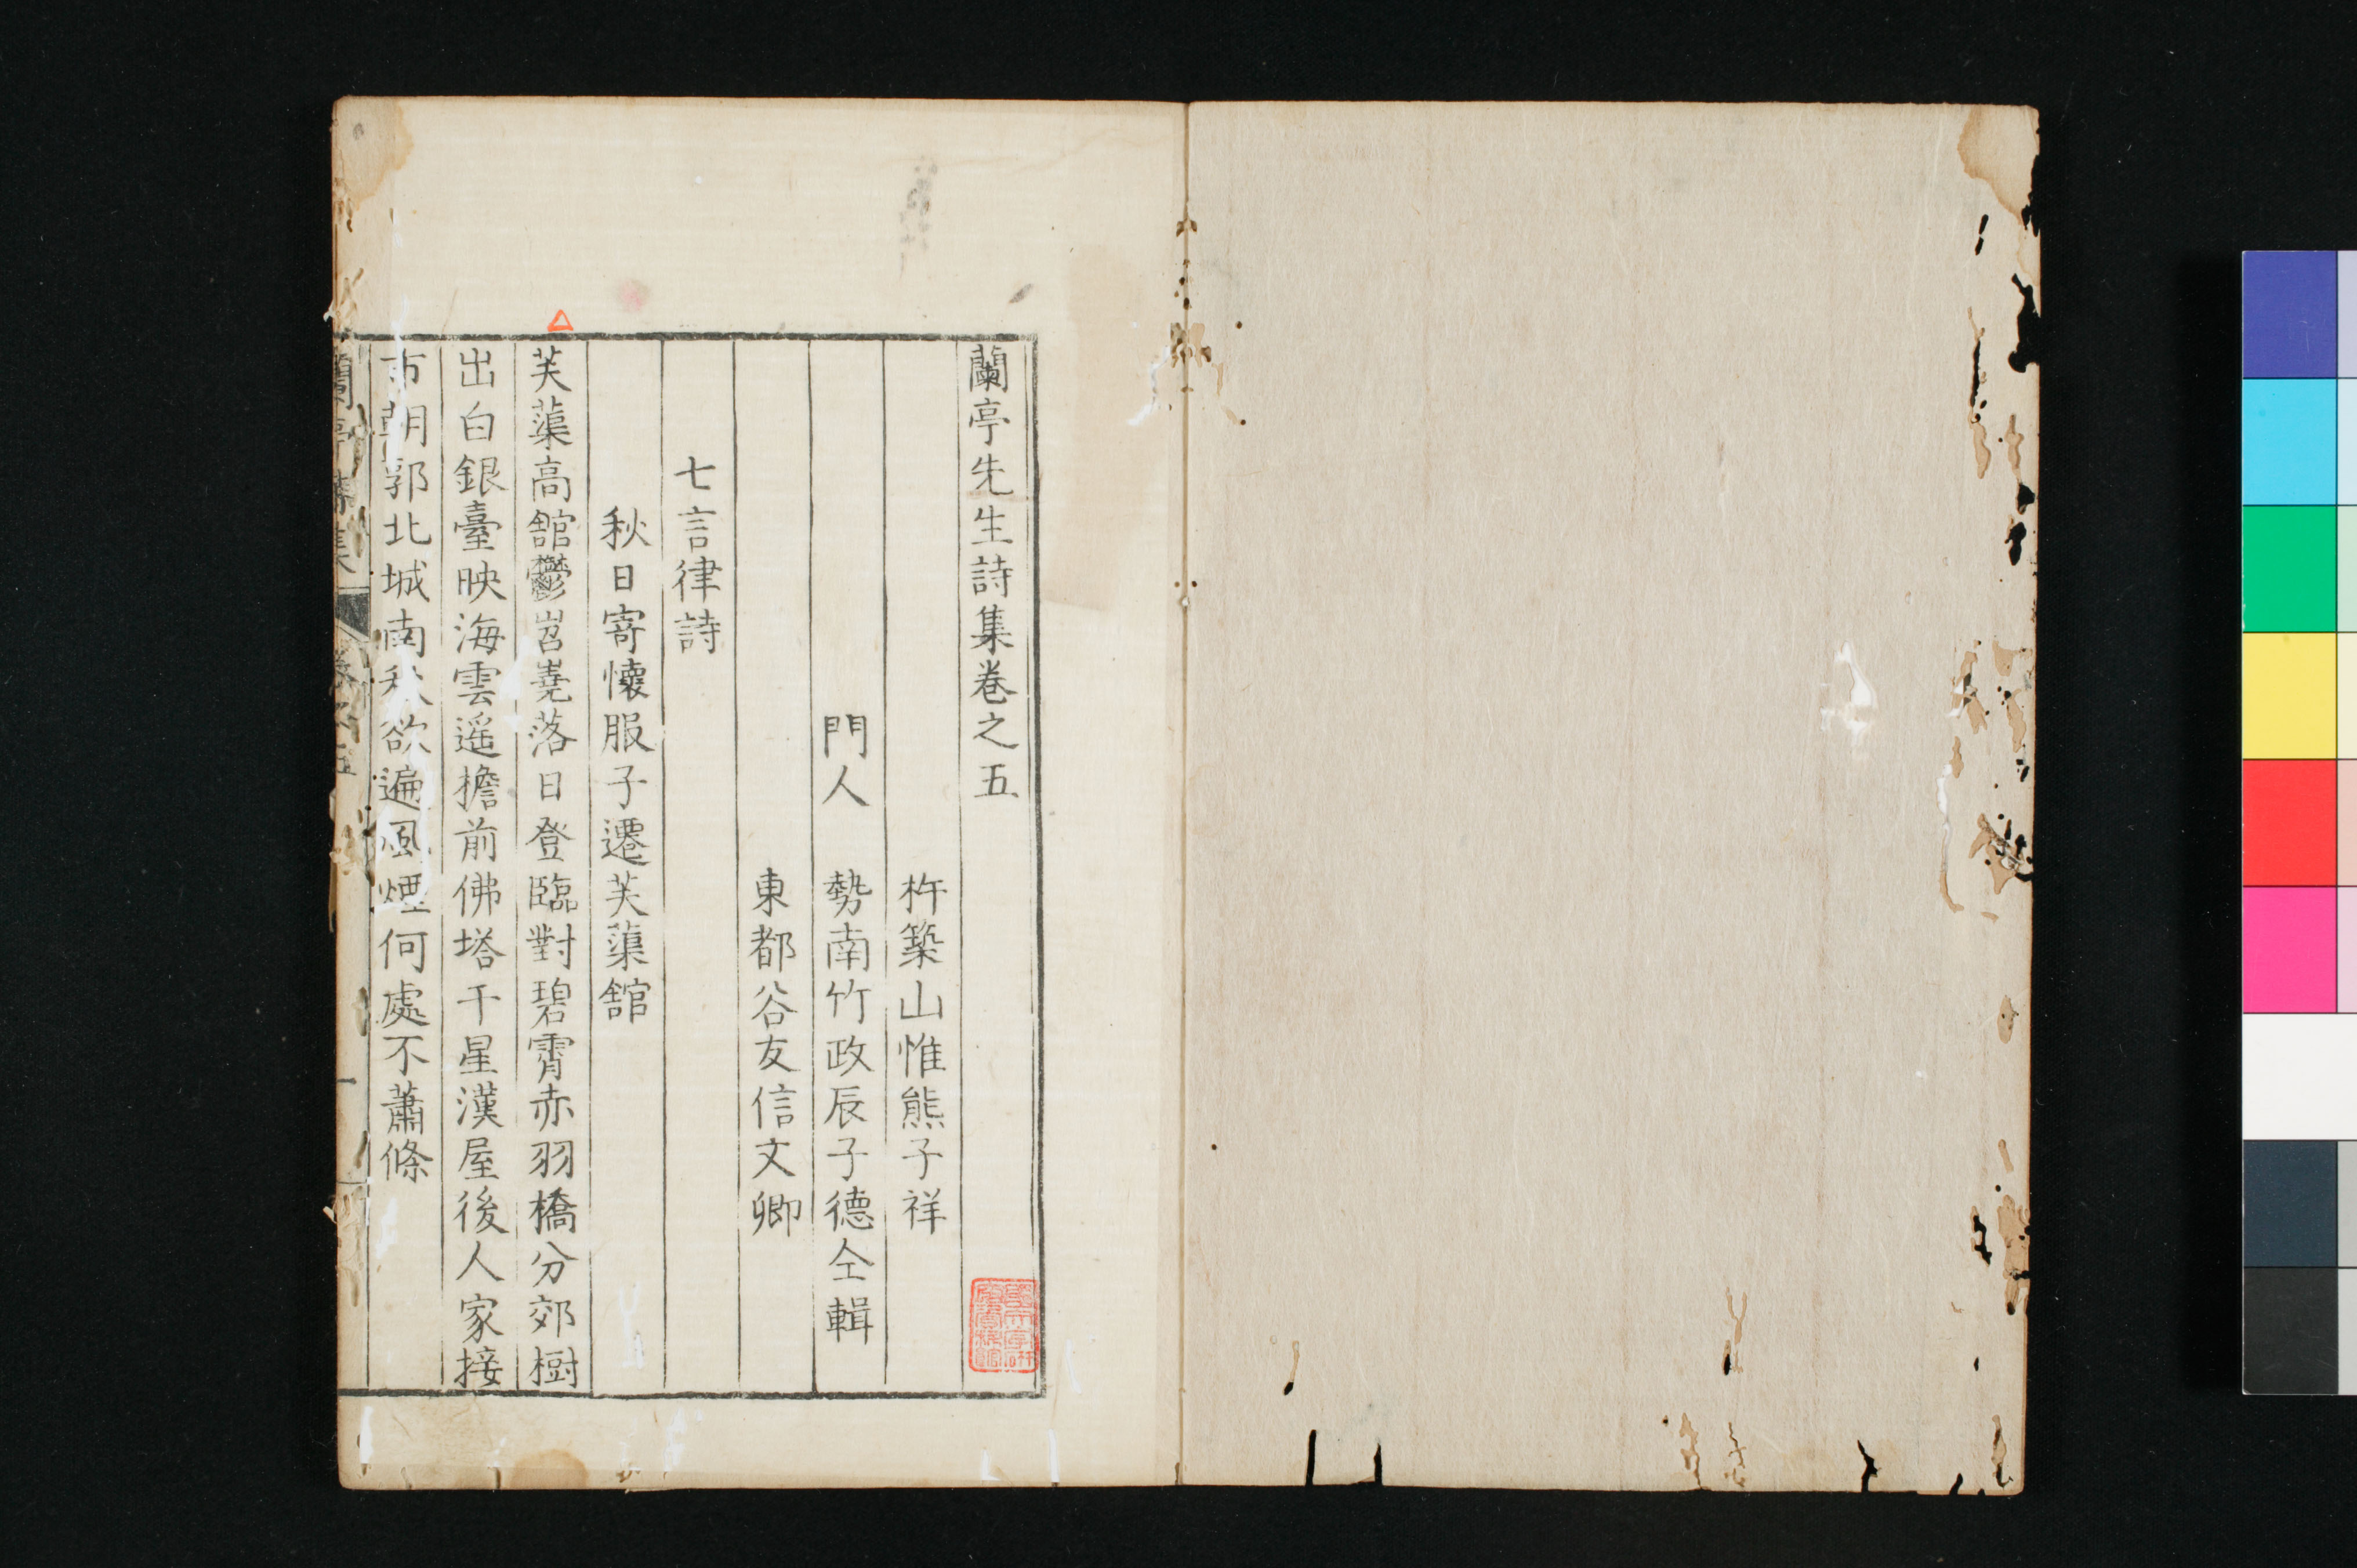 蘭亭先生詩集卷之五
杵築山惟熊子祥
門人 勢南竹政辰子德仝輯
東都谷友信文卿
七言律詩
秋日寄懷服子遷芙蕖館
芙蕖高館鬱岧嶤落日登臨對碧霄赤羽橋分郊樹
出白銀臺映海雲遙檐前佛塔干星漢屋後人家接
市朝郭北城南秋欲遍風煙何處不蕭條
蘭亭詩集 卷之五 一